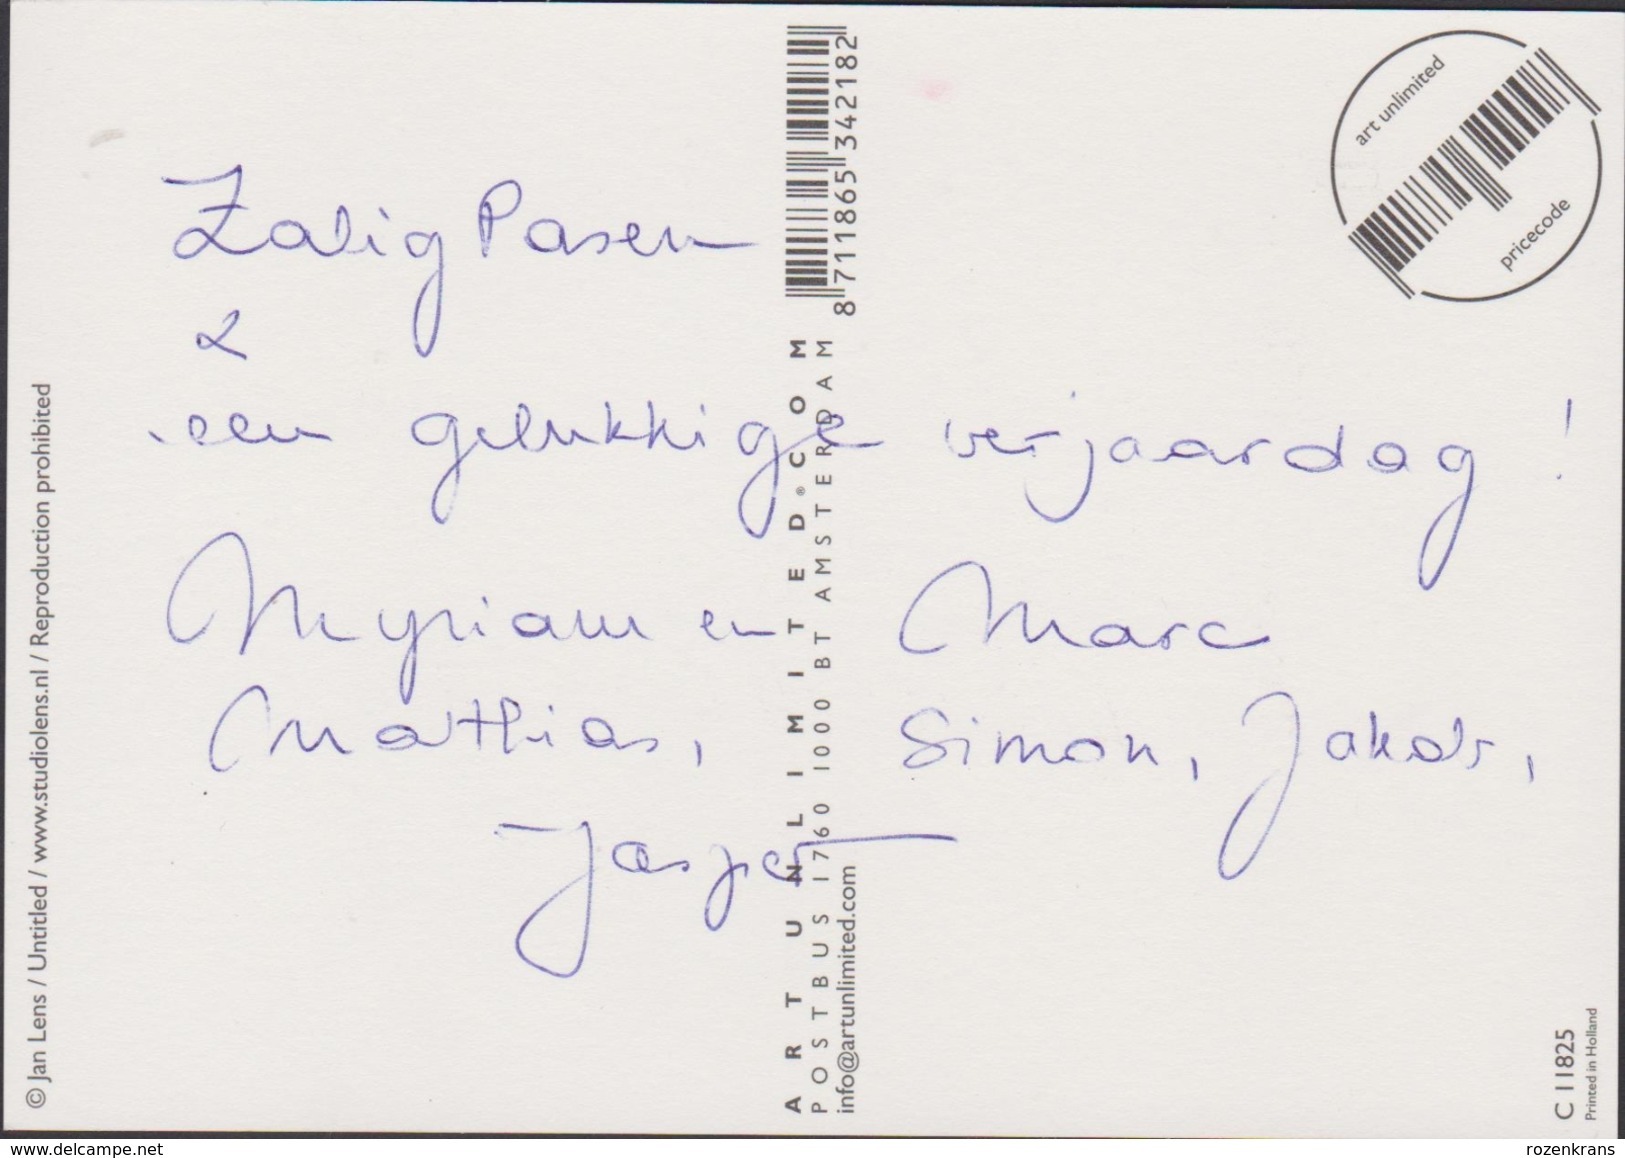 Zalig Pasen
&
een gelukkige verjaardag !
Myriam en Marc
Mathias, Simon, Jakob,
Jasper
© Jan Lens / Untitled / www.studiolens.nl / Reproduction prohibited
ARTUNLIMITED®.COM
POSTBUS 1760 1000 BT AMSTERDAM
info@artunlimited.com
8 711865 342182
art unlimited
pricecode
C 11825
Printed in Holland
www.delcampe.net
rozenkrans